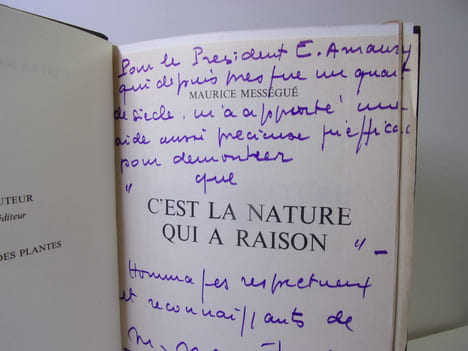 UTEUR
éditeur
DES PLANTES
Pour le President E. Amaury
qui depuis presque un quart
MAURICE MESSÉGUÉ
de siecle, m'a apporté une
aide aussi precieuse qu'effica
pour demontrer
" que
C'EST LA NATURE
QUI A RAISON " -
Hommages respectueux
et reconnaissants de
M.